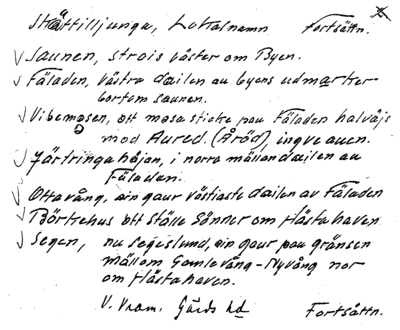 Skättilljunga, Lokalnamn Fortsättn.
Saunen, strais väster om Byen.
Fäladen, västra dailen au byens udmarker
bortom saunen.
Vibemosen, ett mosasticke pau Fäladen halväjs
mod Aured. (Åröd), ingve auen.
Järtringahöjan, i norra mällandailen au
Fäladen.
Ottavång, ain gaur västiaste dailen av Fäladen
Börtschus ett ställe Sönner om Hästahaven
Segen, nu Segeslund, ain gaur pau gränsen
mällom Gamlevång - Nyvång nor
om Hästahaven.
V. Vram. Gärds hd Fortsättn.